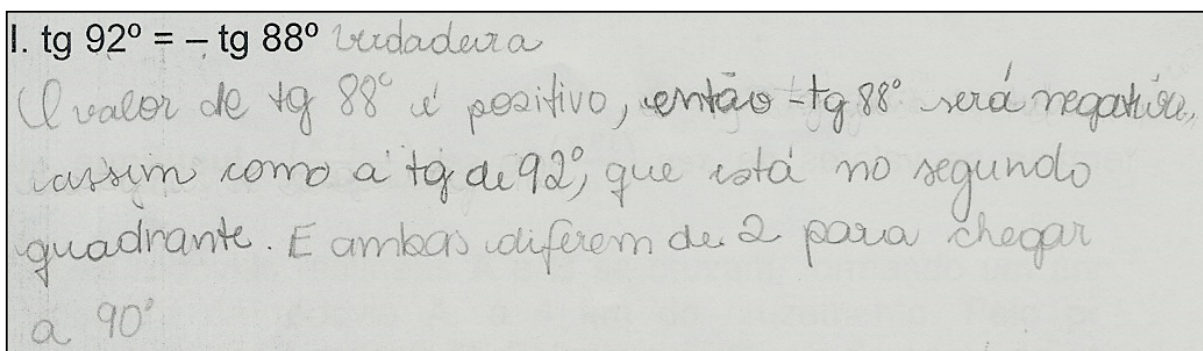 I. tg 92º = – tg 88º verdadeira
O valor de tg 88° é positivo, então -tg 88° será negativa,
assim como a tg de 92°, que está no segundo
quadrante. E ambas diferem de 2 para chegar
a 90°